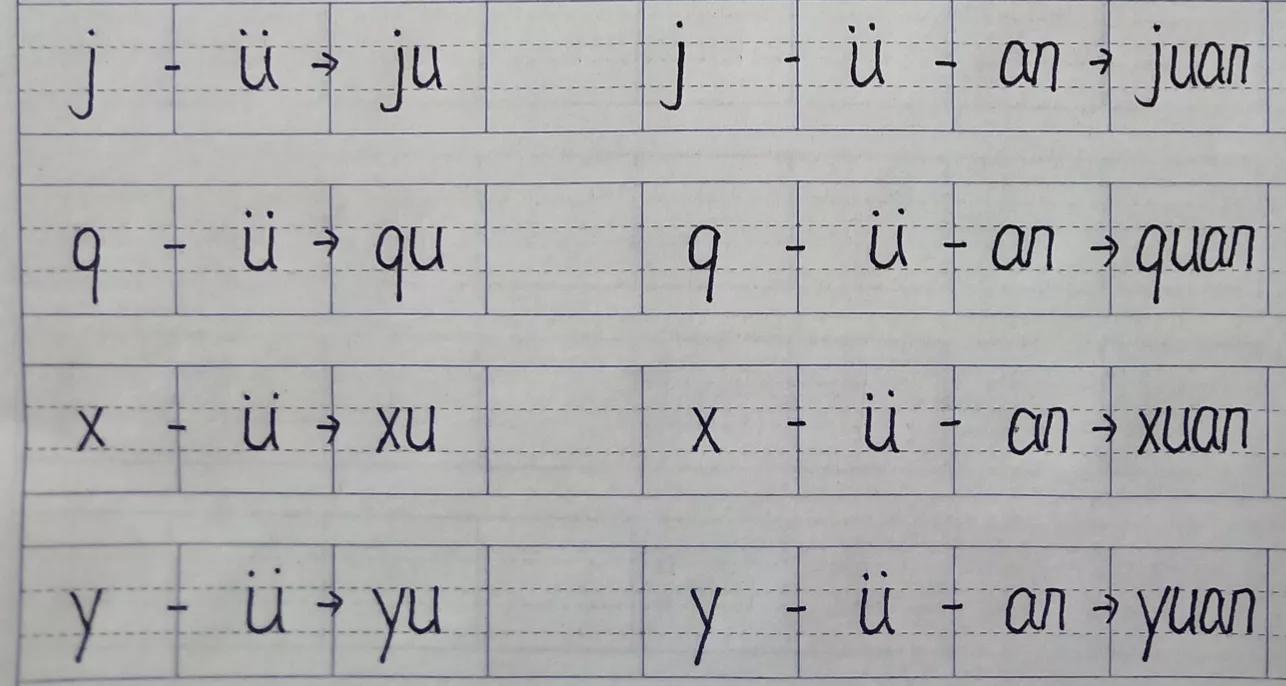 j - ü → ju j - ü - an → juan
q - ü → qu q - ü - an → quan
x - ü → xu x - ü - an → xuan
y - ü → yu y - ü - an → yuan